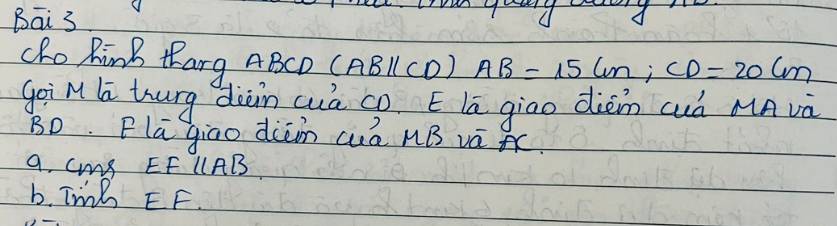 Bài 3
Cho hình thang ABCD (AB//CD) AB = 15 cm ; CD = 20 cm
gọi M là trung điểm của CD. E là giao điểm của MA và
BD. F là giao điểm của MB và AC.
a. cmr EF // AB
b. Tính EF.